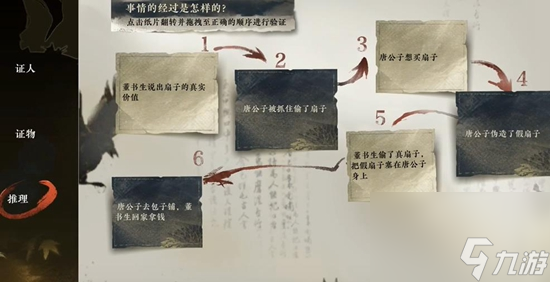 事情的经过是怎样的?
点击纸片翻转并拖拽至正确的顺序进行验证
证人
证物
推理
1
董书生说出扇子的真实
价值
2
唐公子被抓住偷了扇子
3
唐公子想买扇子
4
唐公子伪造了假扇子
5
董书生偷了真扇子,
把假扇子塞在唐公子
身上
6
唐公子去包子铺,董
书生回家拿钱
九游